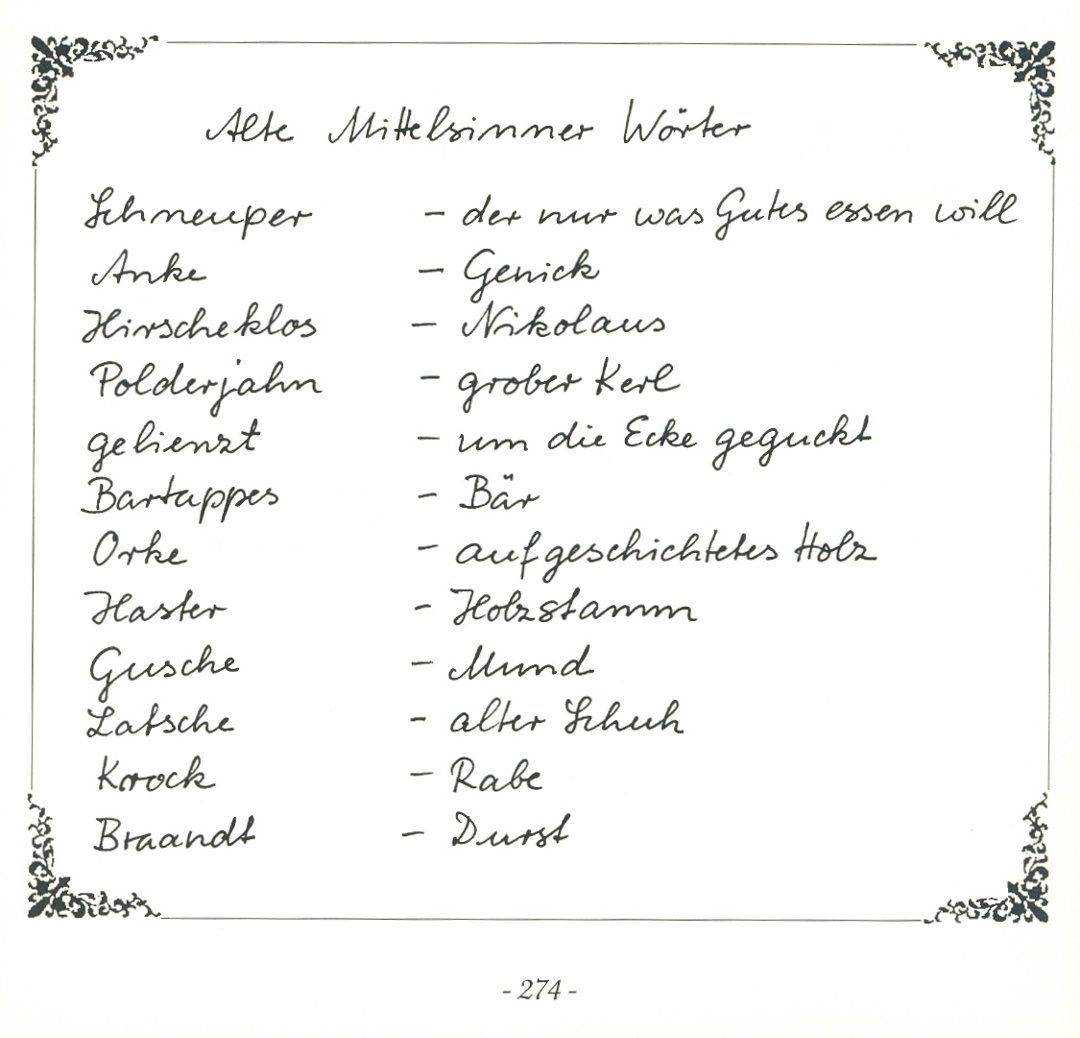 Alte Mittelsinner Wörter
Schneuper – der nur was Gutes essen will
Anke – Genick
Hirscheklos – Nikolaus
Polderjahn – grober Kerl
gelienzt – um die Ecke geguckt
Bartappes – Bär
Orke – aufgeschichtetes Holz
Haster – Holzstamm
Gusche – Mund
Latsche – alter Schuh
Krock – Rabe
Braandt – Durst
- 274 -